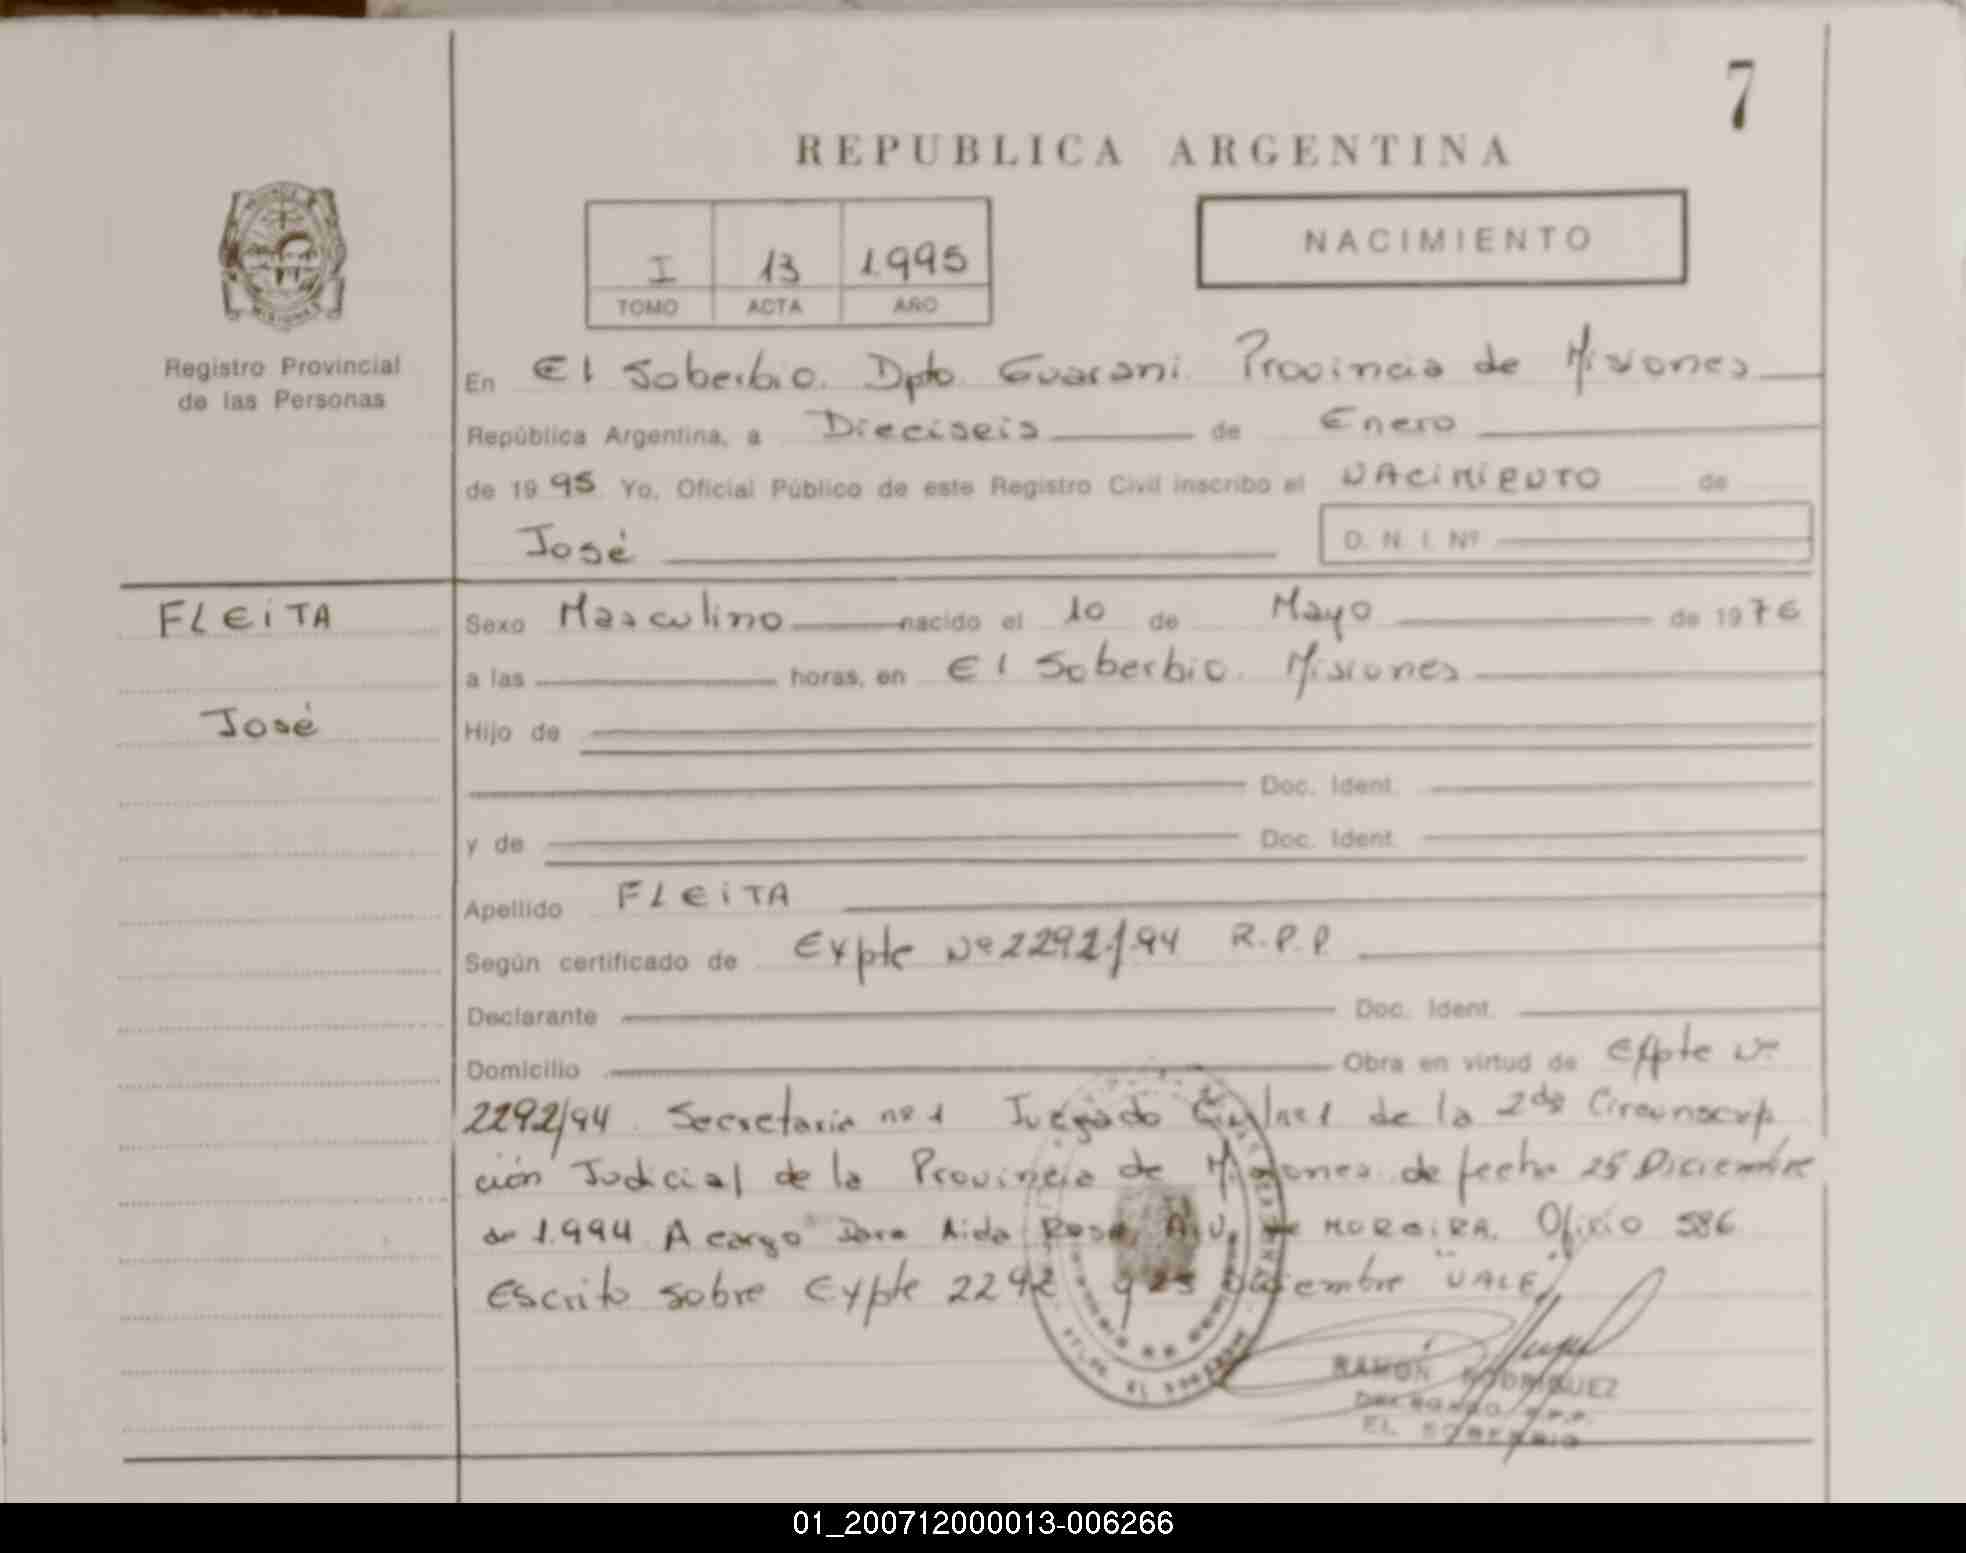 7
REPUBLICA ARGENTINA
I 13 1.995
TOMO ACTA AÑO
NACIMIENTO
Registro Provincial
de las Personas
En El Soberbio. Dpto. Guarani. Provincia de Misiones
República Argentina, a Dieciseis de Enero
de 19 95 Yo, Oficial Público de este Registro Civil inscribo el NACIMIENTO de
José D. N. I. Nº
FLEITA
José
Sexo Masculino nacido el 10 de Mayo de 19 76
a las horas, en El Soberbio. Misiones
Hijo de
Doc. Ident.
y de Doc. Ident.
Apellido FLEITA
Según certificado de Expte Nº 2292/94 R.P.P.
Declarante Doc. Ident.
Domicilio Obra en virtud de Expte Nº
2292/94. Secretaria nº 1 Juzgado Civil nº 1 de la 2da Circunscrip
ción Judicial de la Provincia de Misiones de fecha 25 Diciembre
de 1.994 A cargo Dora Aida Rosa de MOREIRA. Oficio 586
Escrito sobre Expte 2292 y 25 Diciembre "VALE"
RAMÓN RODRIGUEZ
DELEGADO R.P.P.
EL SOBERBIO
01_200712000013-006266